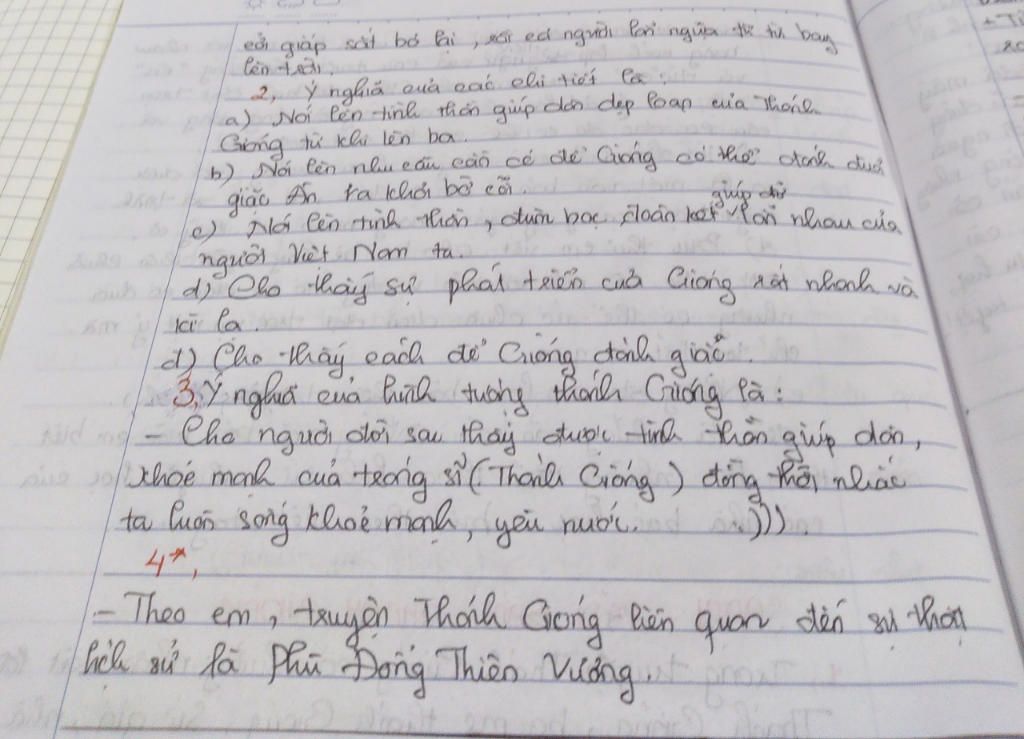 cởi giáp sắt bỏ lại, rồi cả người lẫn ngựa từ từ bay
lên trời.
2, Ý nghĩa của các chi tiết là:
a) Nói lên tinh thần giúp dân dẹp loạn của Thánh
Gióng từ khi lên ba.
b) Nói lên nhu cầu cần có để Gióng có thể đánh đuổi
giặc Ân ra khỏi bờ cõi
giúp đỡ
c) Nói lên tinh thần, đùm bọc, đoàn kết v lẫn nhau của
người Việt Nam ta.
d) Cho thấy sự phát triển của Gióng rất nhanh và
kì lạ.
đ) Cho thấy cách để Gióng đánh giặc.
3, Ý nghĩa của hình tượng thánh Gióng là:
- Cho người đời sau thấy được tinh thần giúp dân,
khoẻ mạnh của tráng sĩ (Thánh Gióng) đồng thời nhắc
ta luôn sống khoẻ mạnh, yêu nước. .)))
4*,
- Theo em, truyện Thánh Gióng liên quan đến sự thật
lịch sử là Phù Đổng Thiên Vương.